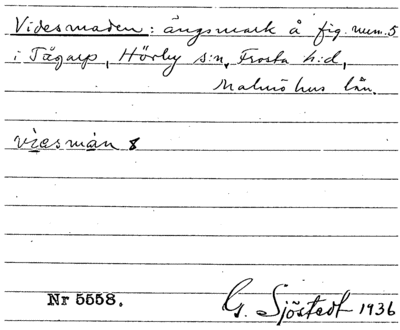 Videsmaden: ängsmark å fig. num. 5
i Tågarp, Hörby s:n, Frosta h:d,
Malmöhus län.
viesmán 8
Nr 5558.
G. Sjöstedt 1936